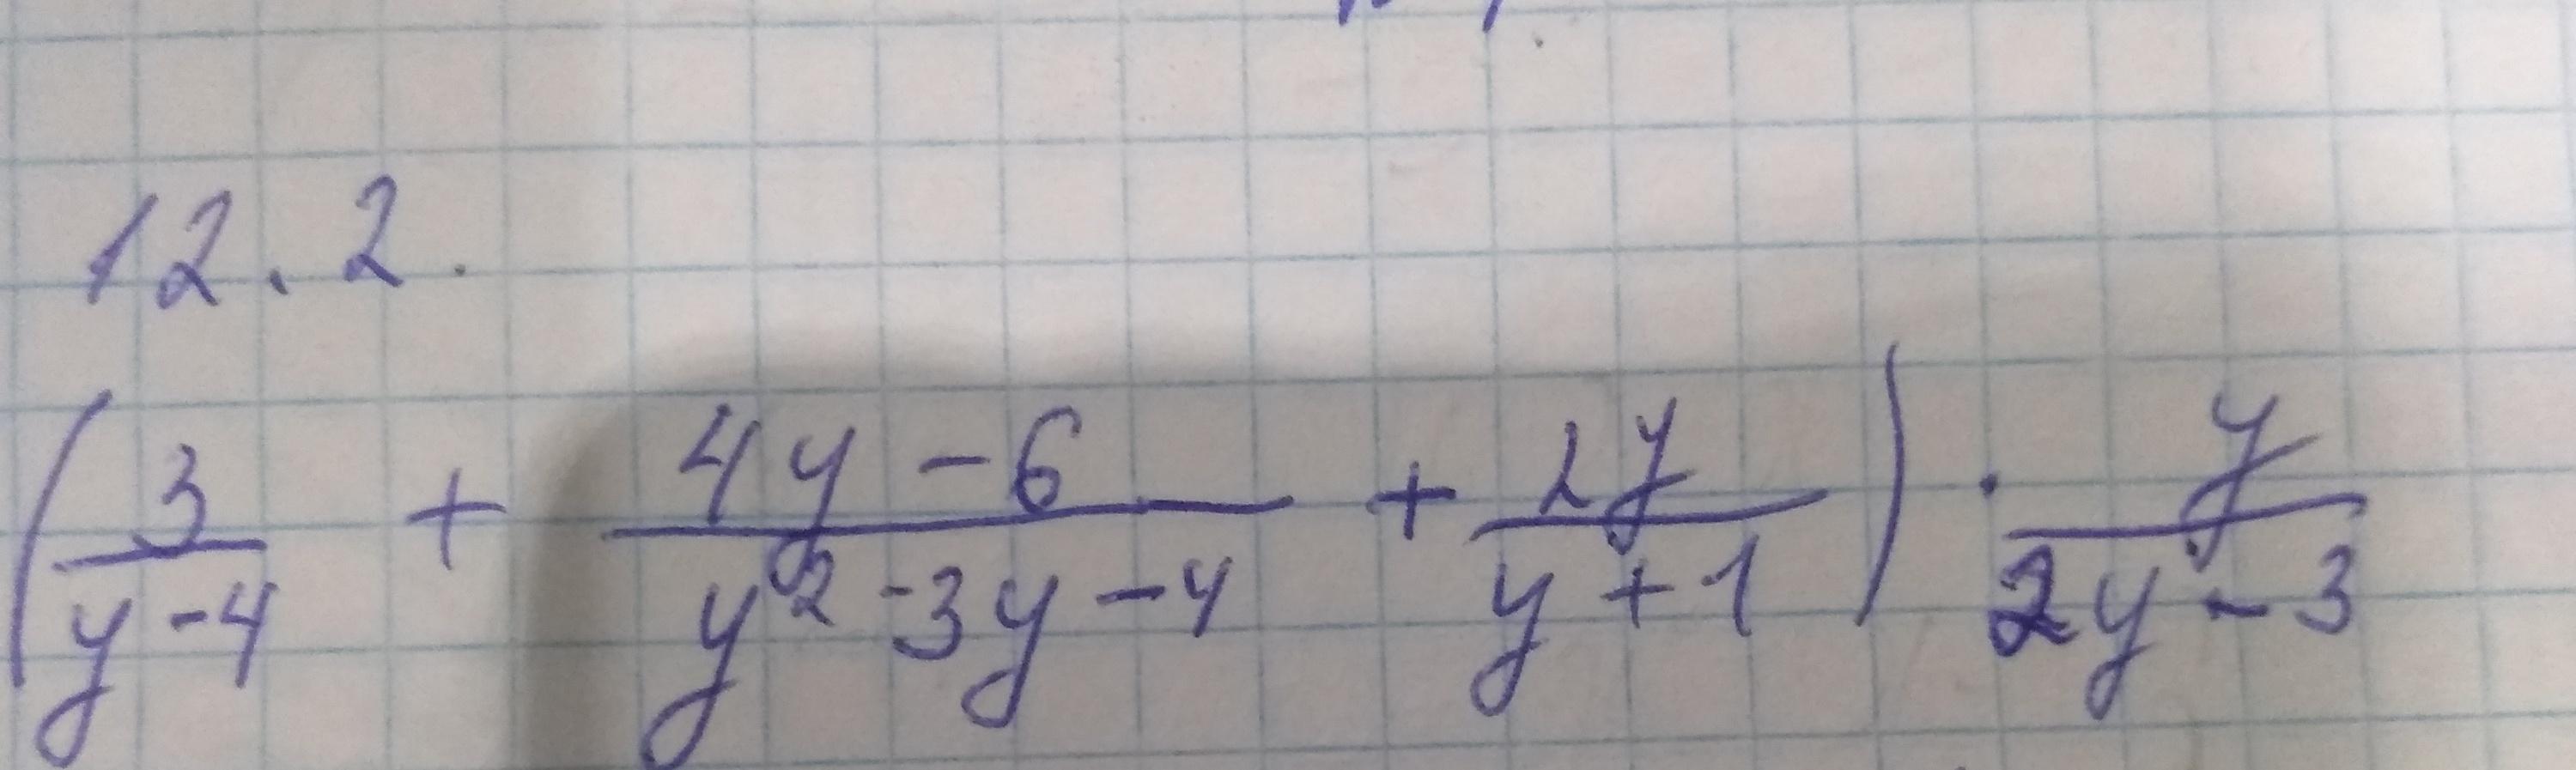 12.2.
(3/(y-4) + (4y-6)/(y²-3y-4) + 2y/(y+1)) · y/(2y-3)